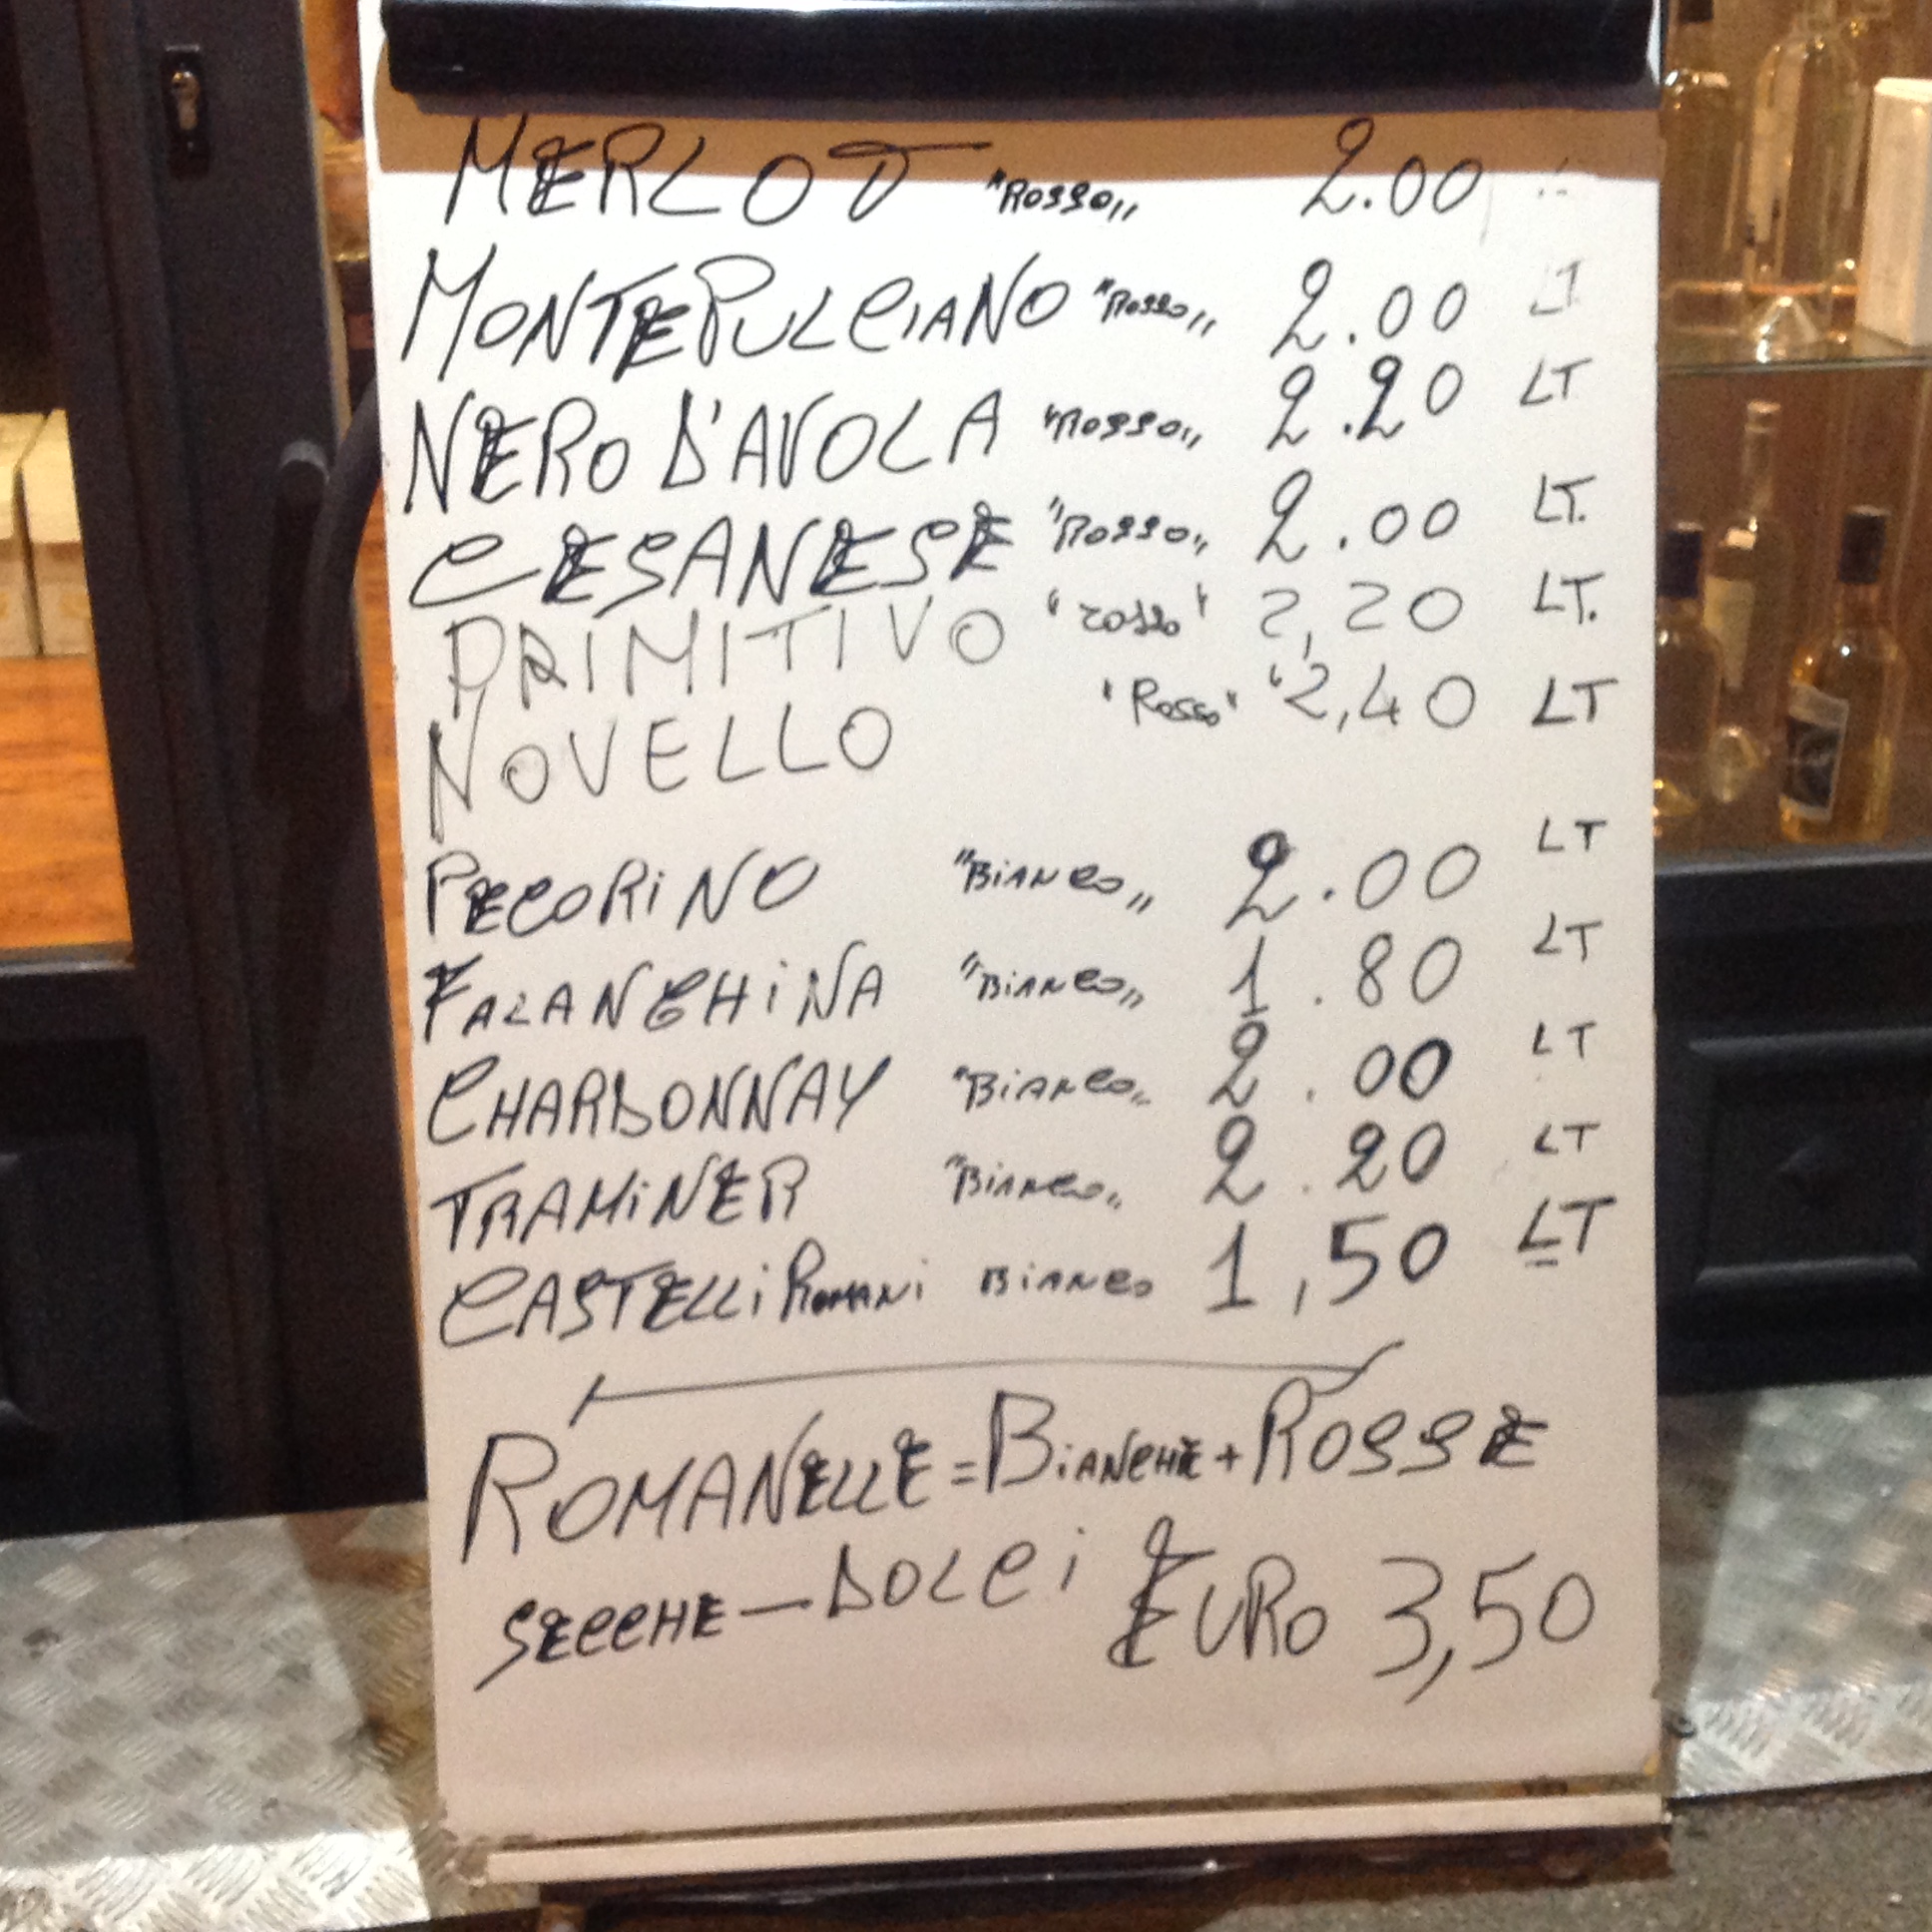 MERLOT "ROSSO„ 2.00
MONTEPULCIANO "ROSSO„ 2.00 LT
NERO D'AVOLA "ROSSO„ 2.20 LT
CESANESE "ROSSO„ 2.00 LT.
PRIMITIVO "rosso" 2,20 LT.
NOVELLO "Rosso" 2,40 LT
PECORiNO "BiANCO„ 2.00 LT
FALANGHiNA "BiANCO„ 1.80 LT
CHARDONNAY "BiANCO„ 2.00 LT
TRAMiNER "BiANCO„ 2.20 LT
CASTELLi ROMANi BiANCO 1,50 LT
ROMANELLE=BiANCHE+ROSSE
SECCHE—DOLCi EURO 3,50